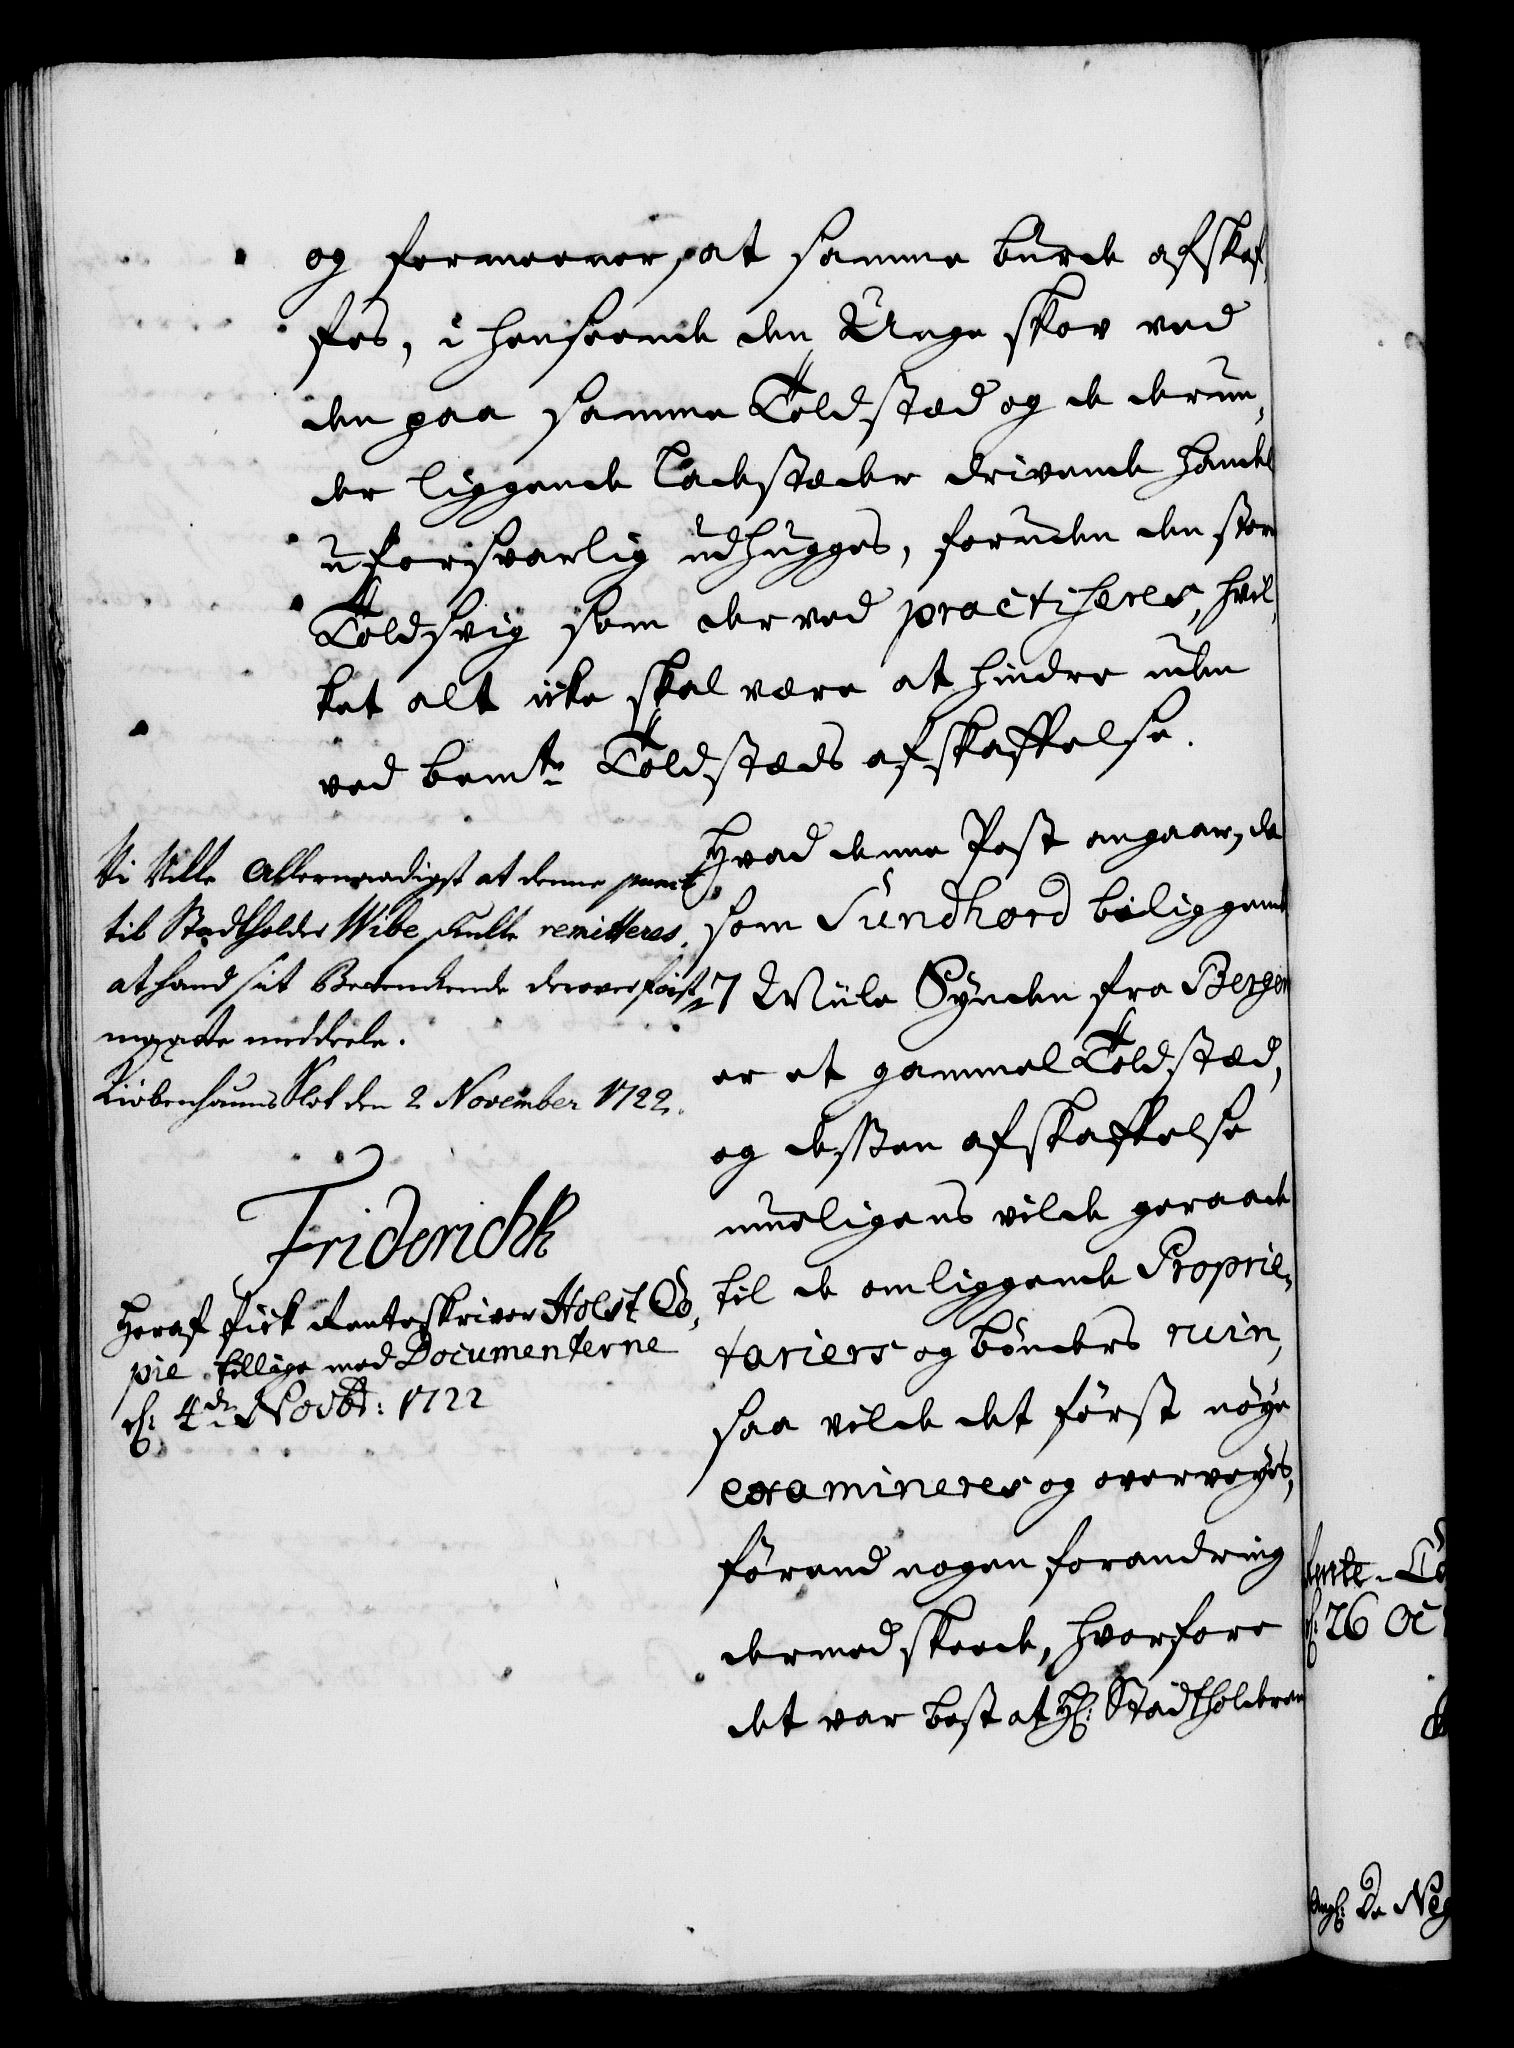 og formeener, at samme burde afskaf,
fes, i henseende den Unge skov ved
den paa samme Toldstæd og de derun,
der liggende Ladestæder drivende handel
uforsvarlig udhugges, foruden den store
Toldsvig som der ved practiheres, hvil,
ket alt icke skal være at hindre uden
ved bemte Toldstæds afskaffelse.
Hvad denne Post angaar, da
som Sundhord beliggende
7 Miile Synden fra Bergen
er et gammel Toldstæd,
og desßen afskaffelse
mueligens vilde geraade
til de omliggende Proprie,
tariers og bønders ruin,
saa vilde det først nøye
examineres og overveyes,
førend nogen forandring
dermed skeede, hvorfore
det var best at Hr: Stadtholderen
Vi Ville Allernaadigst at denne punct
til Stadtholder Wibe skulle remitteres,
at hand sit Betenkende derover først
maatte meddeele.
Kiøbenhauns Slot den 2 November 1722.
Friderich R
Heraf fick Renteskriver Holst Co,
pie tillige med Documenterne
d: 4de Novbr: 1722
Rente-Ca
d: 26 Oc
Ang: De Neg